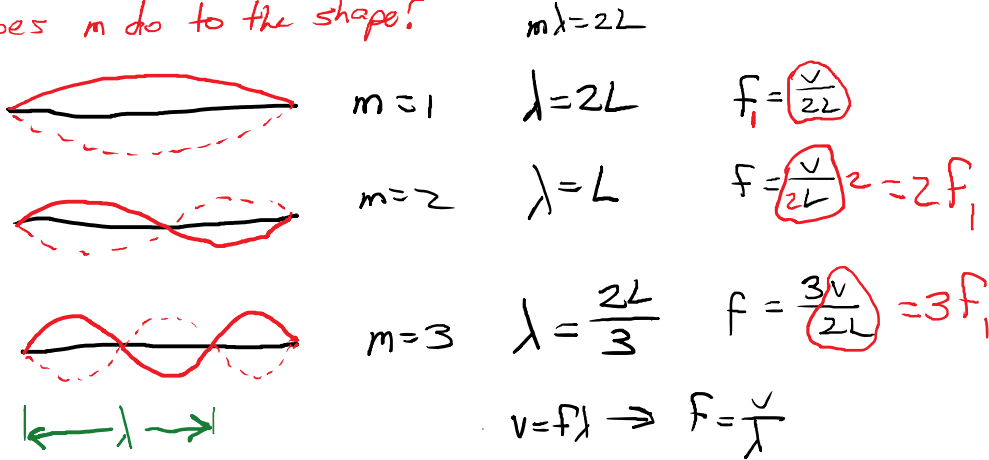 m do to the shape?
mλ=2L
m=1 λ=2L f₁=v/2L
m=2 λ=L f=v/2L 2=2f₁
m=3 λ=2L/3 f=3v/2L=3f₁
λ
v=fλ→f=v/λ